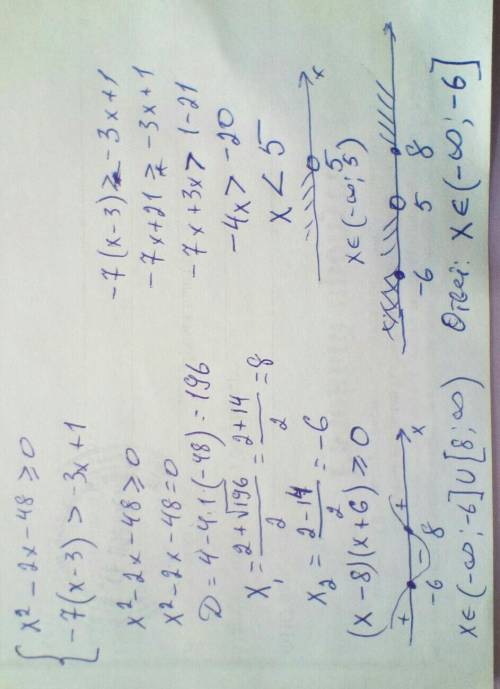 { x² - 2x - 48 ≥ 0
-7(x-3) > -3x + 1
x² - 2x - 48 ≥ 0
x² - 2x - 48 = 0
D = 4 - 4·1·(-48) = 196
x₁ = (2 + √196)/2 = (2 + 14)/2 = 8
x₂ = (2 - 14)/2 = -6
(x - 8)(x + 6) ≥ 0
+ - +
-6 8 x
x ∈ (-∞; -6] ∪ [8; ∞)
-7(x-3) ≥ -3x + 1
-7x + 21 ≥ -3x + 1
-7x + 3x > 1 - 21
-4x > -20
x < 5
5 x
x ∈ (-∞; 5)
-6 5 8
Ответ: x ∈ (-∞; -6]